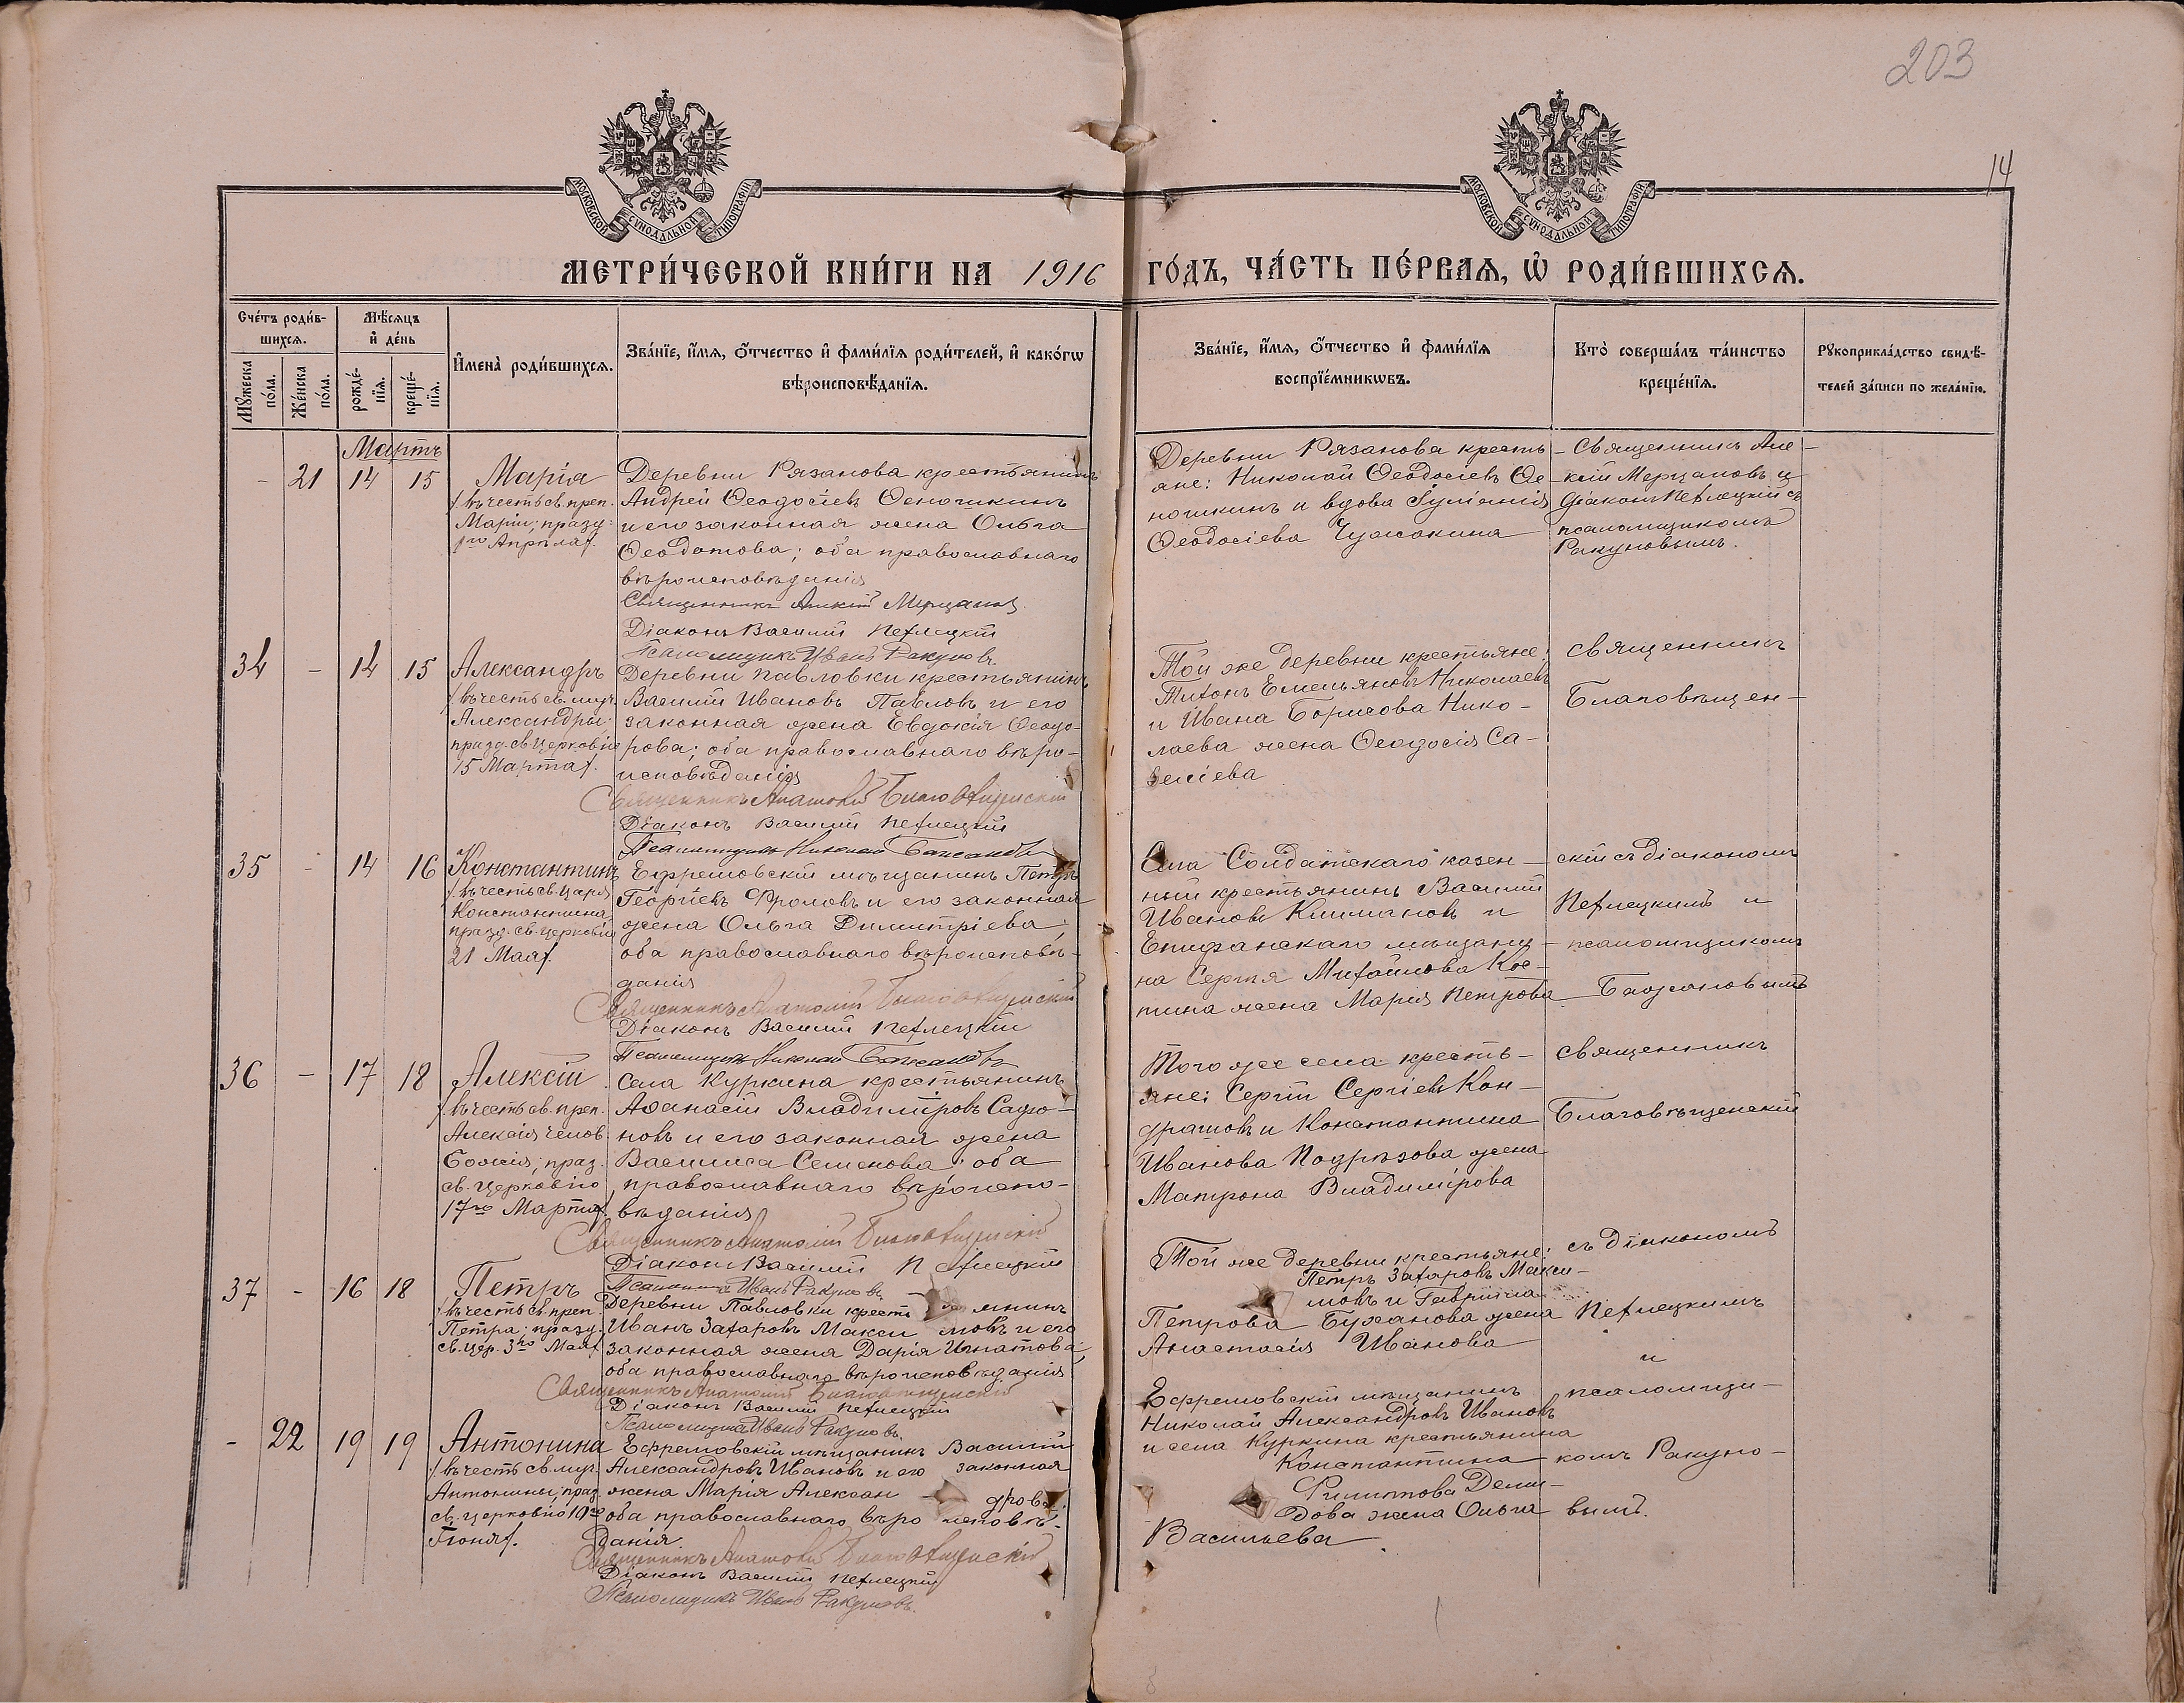 203
14
МОСКОВСКОЙ СѴНОДАЛЬНОЙ ТИПОГРАФІИ
МОСКОВСКОЙ СѴНОДАЛЬНОЙ ТИПОГРАФІИ
МЕТРИ́ЧЕСКОЙ КНИ́ГИ НА 1916 ГО́ДЪ, ЧА́СТЬ ПЕ́РВАѦ, Ѡ҆ РОДИ́ВШИХСѦ.
Сче́тъ роди́в-
шихсѧ.
Мꙋ́жеска по́ла.
Же́нска по́ла.
Мѣ́сѧцъ
и҆ де́нь
рожде́-
нїѧ.
креще́-
нїѧ.
И҆мена̀ роди́вшихсѧ.
Зва́нїе, и҆́мѧ, ѻ҆́тчество и҆ фами́лїѧ роди́телей, и҆ како́гѡ
вѣроисповѣ́данїѧ.
Зва́нїе, и҆́мѧ, ѻ҆́тчество и҆ фами́лїѧ
воспрїе́мникѡвъ.
Кто̀ соверша́лъ та́инство
креще́нїѧ.
Рꙋкоприкла́дство свидѣ́-
телей за́писи по жела́нїю.
Мартъ
- 21 14 15
Марія
/въ честь св. преп.
Маріи; празд:
1го Апрѣля/.
Деревни Рязанова крестьянинъ
Андрей Ѳеодосіевъ Ѳеношкинъ
и его законная жена Ольга
Ѳеодотова; оба православнаго
вѣроисповѣданія
Священникъ Алексій Мерцаловъ
Діаконъ Василій Пехлецкій
Псаломщикъ Иванъ Ракуновъ
Деревни Рязанова кресть-
яне: Николай Ѳеодосіевъ Ѳе-
ношкинъ и вдова Іуліанія
Ѳеодосіева Чужакина
Священникъ Але-
ксій Мерцаловъ и
діаконъ Пехлецкій съ
псаломщикомъ
Ракуновымъ.
34 - 14 15
Александръ
/въ честь св. муч.
Александры:
празд. св. Церковію
15 Марта/.
Деревни Павловки крестьянинъ
Василій Ивановъ Павловъ и его
законная жена Евдокія Ѳеодо-
рова; оба православнаго вѣро-
исповѣданія
Священникъ Анатолій Благовѣщенскій
Діаконъ Василій Пехлецкій
Псаломщикъ Николай Бажановъ
Той же деревни крестьяне:
Тихонъ Емельяновъ Николаевъ
и Ивана Борисова Нико-
лаева жена Ѳеодосія Са-
веліева
Священникъ
Благовѣщен-
35 - 14 16
Константинъ
/въ честь св. Царя
Константина,
празд. св. церковію
21 Мая/.
Ефремовскій мѣщанинъ Петръ
Георгіевъ Фроловъ и его законная
жена Ольга Димитріева;
оба православнаго вѣроисповѣ-
данія
Священникъ Анатолій Благовѣщенскій
Діаконъ Василій Пехлецкій
Псаломщикъ Николай Бажановъ
Села Солдатскаго казен-
ный крестьянинъ Василій
Ивановъ Климановъ и
Епифанскаго мѣщани-
на Сергѣя Михайлова
жена Марія Петрова
скій съ діакономъ
Пехлецкимъ и
псаломщикомъ
Бажановымъ
36 - 17 18
Алексій
/въ честь св. преп.
Алексія челов.
Божія; праз.
св. церковію
17го Марта/.
Села Куркина крестьянинъ
Аѳанасій Владиміровъ
и его законная жена
Василиса Семенова; оба
православнаго вѣроиспо-
вѣданія
Священникъ Анатолій Благовѣщенскій
Діаконъ Василій Пехлецкій
Псаломщикъ Иванъ Ракуновъ
Того же села кресть-
яне: Сергій Сергіевъ Кон-
драшовъ и Константина
Иванова Подрѣзова жена
Матрона Владимірова
Священникъ
Благовѣщенскій
37 - 16 18
Петръ
/въ честь св. преп.
Петра; празд.
св. цер. 3го Мая/
Деревни Павловки крестьянинъ
Иванъ Захаровъ Максимовъ и его
законная жена Дарія Игнатова;
оба православнаго вѣроисповѣданія
Священникъ Анатолій Благовѣщенскій
Діаконъ Василій Пехлецкій
Псаломщикъ Иванъ Ракуновъ.
Той же деревни крестьяне:
Петръ Захаровъ Макси-
мовъ и Гавріила
Петрова Буханова жена
Анастасія Иванова
съ діакономъ
Пехлецкимъ
и
- 22 19 19
Антонина
/въ честь св. муч.
Антонины; праз.
св. церковію 10го
Іюня/.
Ефремовскій мѣщанинъ Василій
Александровъ Ивановъ и его законная
жена Марія Александрова;
оба православнаго вѣроисповѣ-
данія.
Священникъ Анатолій Благовѣщенскій
Діаконъ Василій Пехлецкій
Псаломщикъ Иванъ Ракуновъ.
Ефремовскій мѣщанинъ
Николай Александровъ Ивановъ
и села Куркина крестьянина
Константина
Филиппова Деми-
дова жена Ольга
Васильева.
псаломщи-
комъ Ракуно-
вымъ.